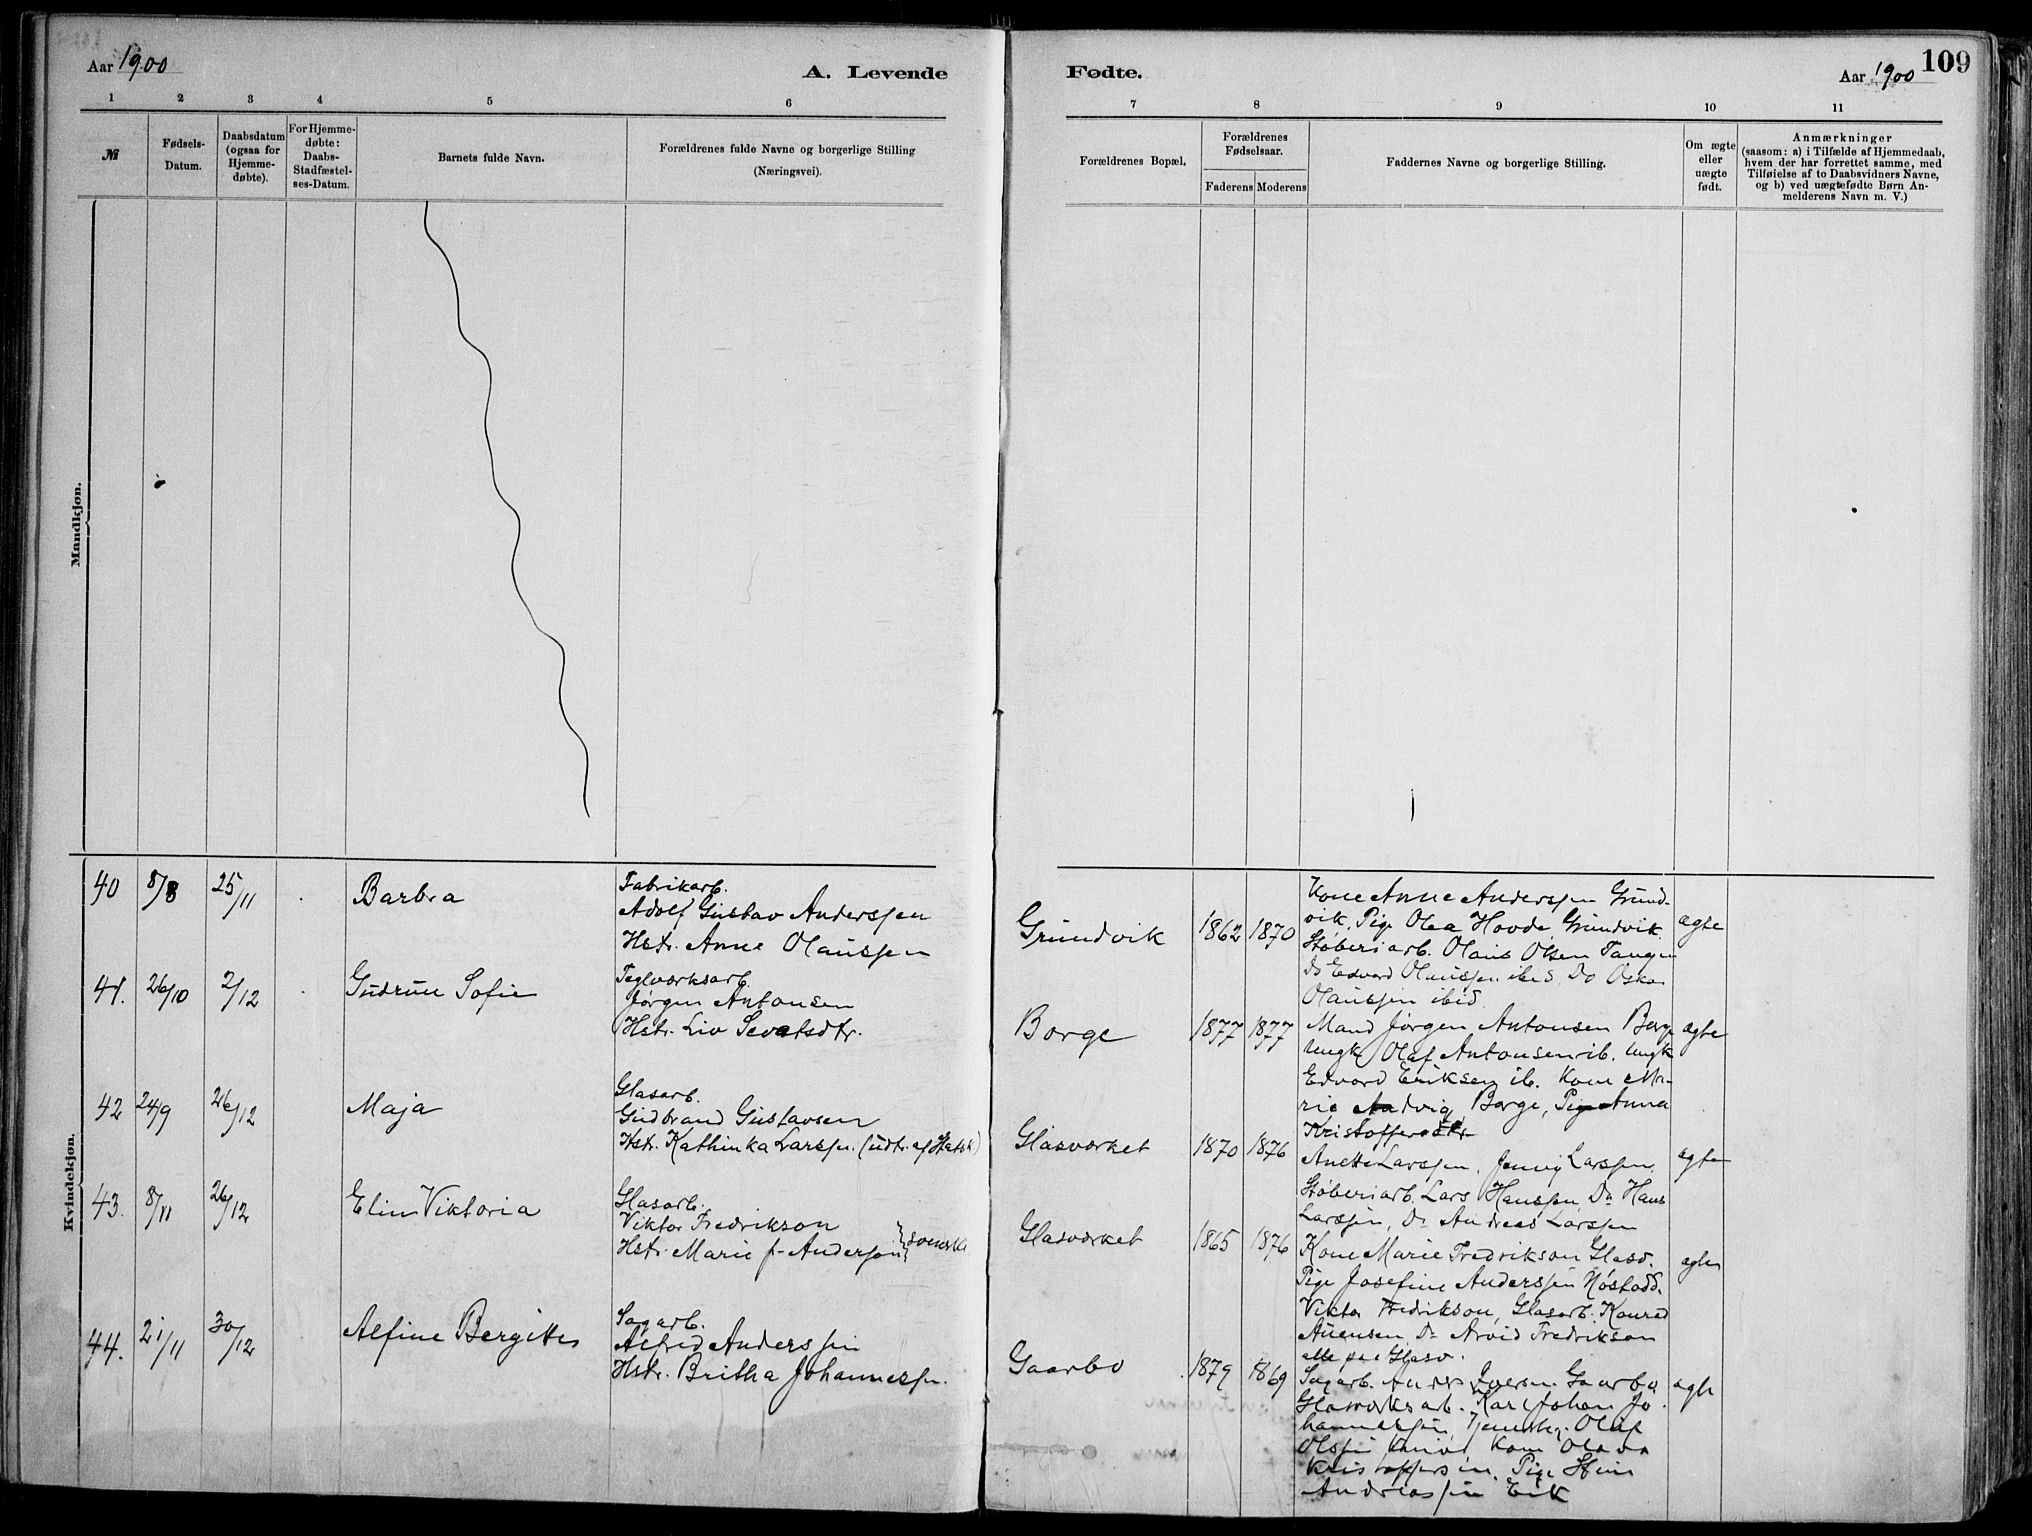 Aar 1900
A. Levende
1 2 3 4 5 6
№
Fødsels-
Datum.
Daabsdatum
(ogsaa for
Hjemme-
døbte).
For Hjemme-
døbte:
Daabs-
Stadfæstel-
ses-Datum.
Barnets fulde Navn.
Forældrenes fulde Navne og borgerlige Stilling
(Næringsvei).
Mandkjøn.
Kvindekjøn.
40 8/8 25/11 Barbra
Fabrikarb.
Adolf Gustav Anderssen
Hstr. Anne Olaussen
41. 26/10 2/12 Gudrun Sofie
Teglværksarb.
Jørgen Antonsen
Hstr. Liv Sevatsdtr.
42 24/9 26/12 Maja
Glasarb.
Gudbrand Gustavsen
Hstr. Kathinka Larssen. (udtr. af Statsk)
43. 8/11 26/12 Elin Viktoria
Glasarb.
Viktor Fredrikson
Hstr. Marie f. Anderson } svenske
44. 21/11 30/12 Alfine Bergitte
Sagarb.
Alfred Anderssen
Hstr. Britha Johannessen.
Fødte.
Aar 1900
109
7 8 9 10 11
Forældrenes Bopæl.
Forældrenes
Fødselsaar.
Faderens Moderens
Faddernes Navne og borgerlige Stilling.
Om ægte
eller
uægte
født.
Anmærkninger
(saasom: a) i Tilfælde af Hjemmedaab,
hvem der har forrettet samme, med
Tilføielse af to Daabsvidners Navne,
og b) ved uægtefødte Børn An-
melderens Navn m. V.)
Grundvik 1862 1870
Kone Anne Anderssen Grund-
vik, Pige Olea Hovde, Grundvik.
Støberiarb. Olaus Olsen Tangen
Do Edvard Olaussen ibid. Do Oskar
Olaussen ibid.
ægte
Borge 1877 1877
Mand Jørgen Antonsen Borge
Ungk. Olaf Antonsen ib. Ungk
Edvard Eriksen ib. Kone Ma-
rie Borge, Pige Anna
Kristoffersdtr.
ægte
Glasværket 1870 1876
Anette Larssen, Jenny Larssen,
Støberiarb. Lars Hanssen, Do Hans
Larssen, Do Andreas Larssen
ægte
Glasværket 1865 1876
Kone Marie Fredrikson Glasv.
Pige Josefine Anderssen Nøstodd.
Viktor Fredrikson, Glasarb. Konrad
Do Arvid Fredrikson
alle paa Glasv.
ægte
Gaarbo 1879 1869
Sagarb. Anders Iversen Gaarbo
Glasværksarb. Karl Johan Jo-
hannessen, Olaf
Olssen Kone Olava
Kristoffersen, Pige Stine
Andreassen Eik
ægte